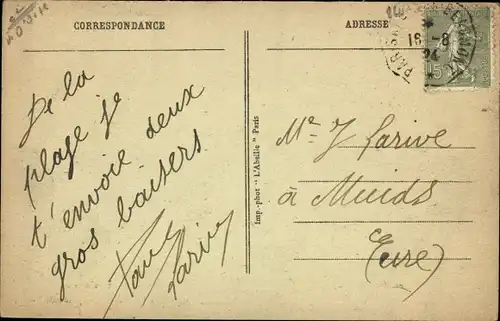 CORRESPONDANCE
De la
plage je
t'envoie deux
gros baisers
Larive
Imp.-phot "L'Abeille" Paris
ADRESSE
Mr J Larive
à Muids
(Eure)
PARIS
18-8
24
15